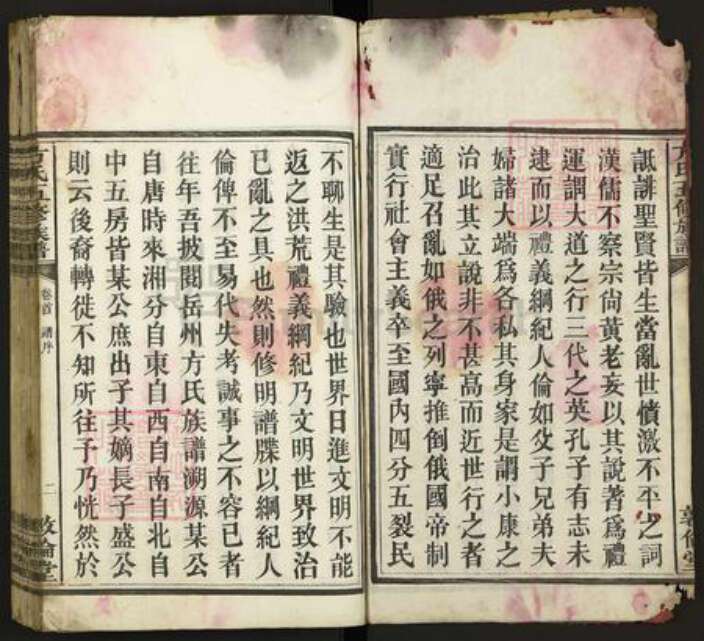 方氏五修族譜
敦倫堂
詆誹聖賢皆生當亂世憤激不平之詞
漢儒不察宗尙黃老妄以其說著爲禮
運謂大道之行三代之英孔子有志未
逮而以禮義綱紀人倫如父子兄弟夫
婦諸大端爲各私其身家是謂小康之
治此其立說非不甚高而近世行之者
適足召亂如俄之列寧推倒俄國帝制
實行社會主義卒至國內四分五裂民
不聊生是其驗也世界日進文明不能
返之洪荒禮義綱紀乃文明世界致治
已亂之具也然則修明譜牒以綱紀人
倫俾不至易代失考誠事之不容已者
往年吾披閱岳州方氏族譜溯源某公
自唐時來湘分自東自西自南自北自
中五房皆某公庶出子其嫡長子盛公
則云後裔轉徙不知所往予乃恍然於
方氏五修族譜
卷首 譜序
二
敦倫堂